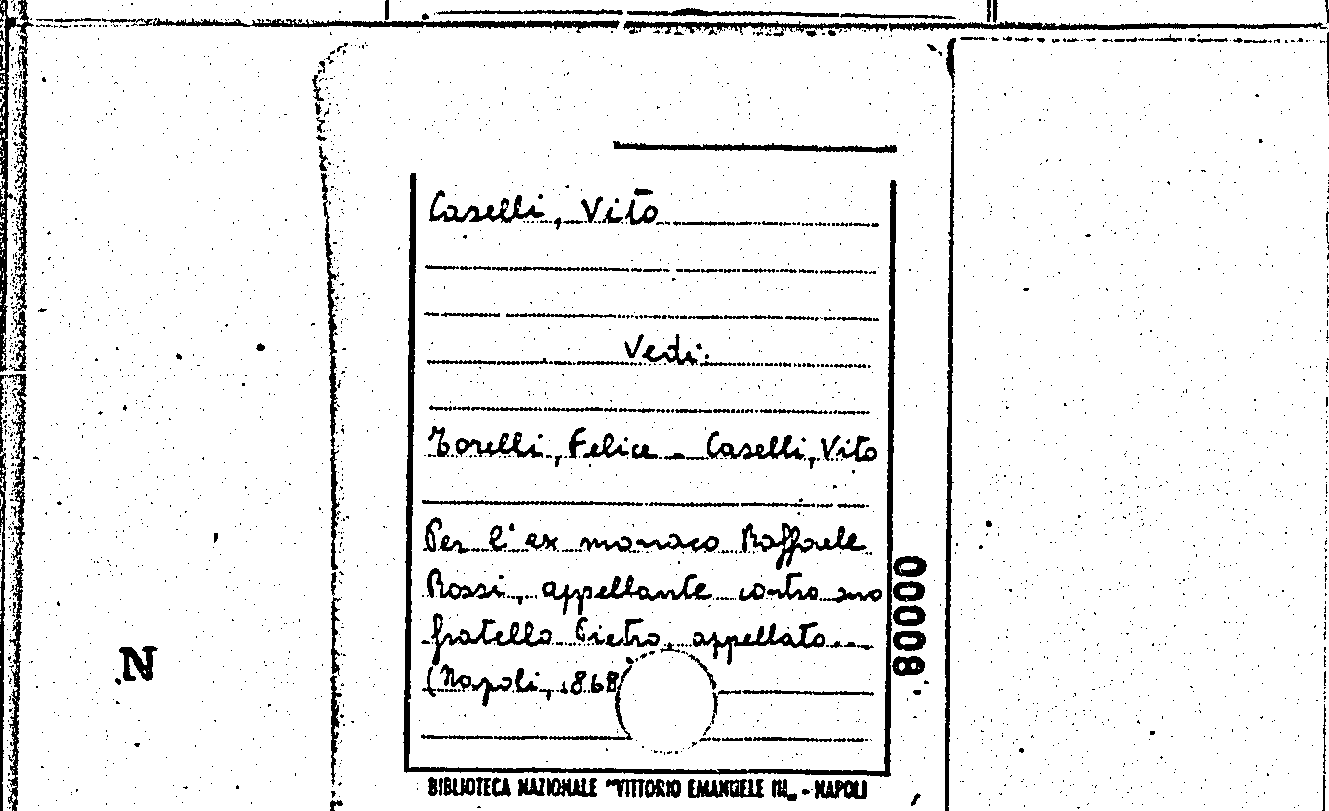 Caselli, Vito
Vedi:
Torelli, Felice - Caselli, Vito
Per l'ex monaco Raffaele
Rossi, appellante contro suo
fratello Pietro, appellato...
(Napoli, 1868)
BIBLIOTECA NAZIONALE "VITTORIO EMANUELE III" - NAPOLI
00008
N